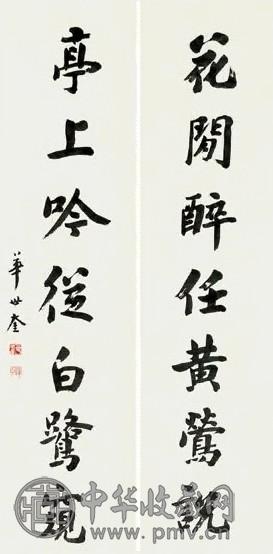 花間醉任黃鶯說
亭上吟從白鷺窺
華世奎
中华收藏网
www.pmv.cn